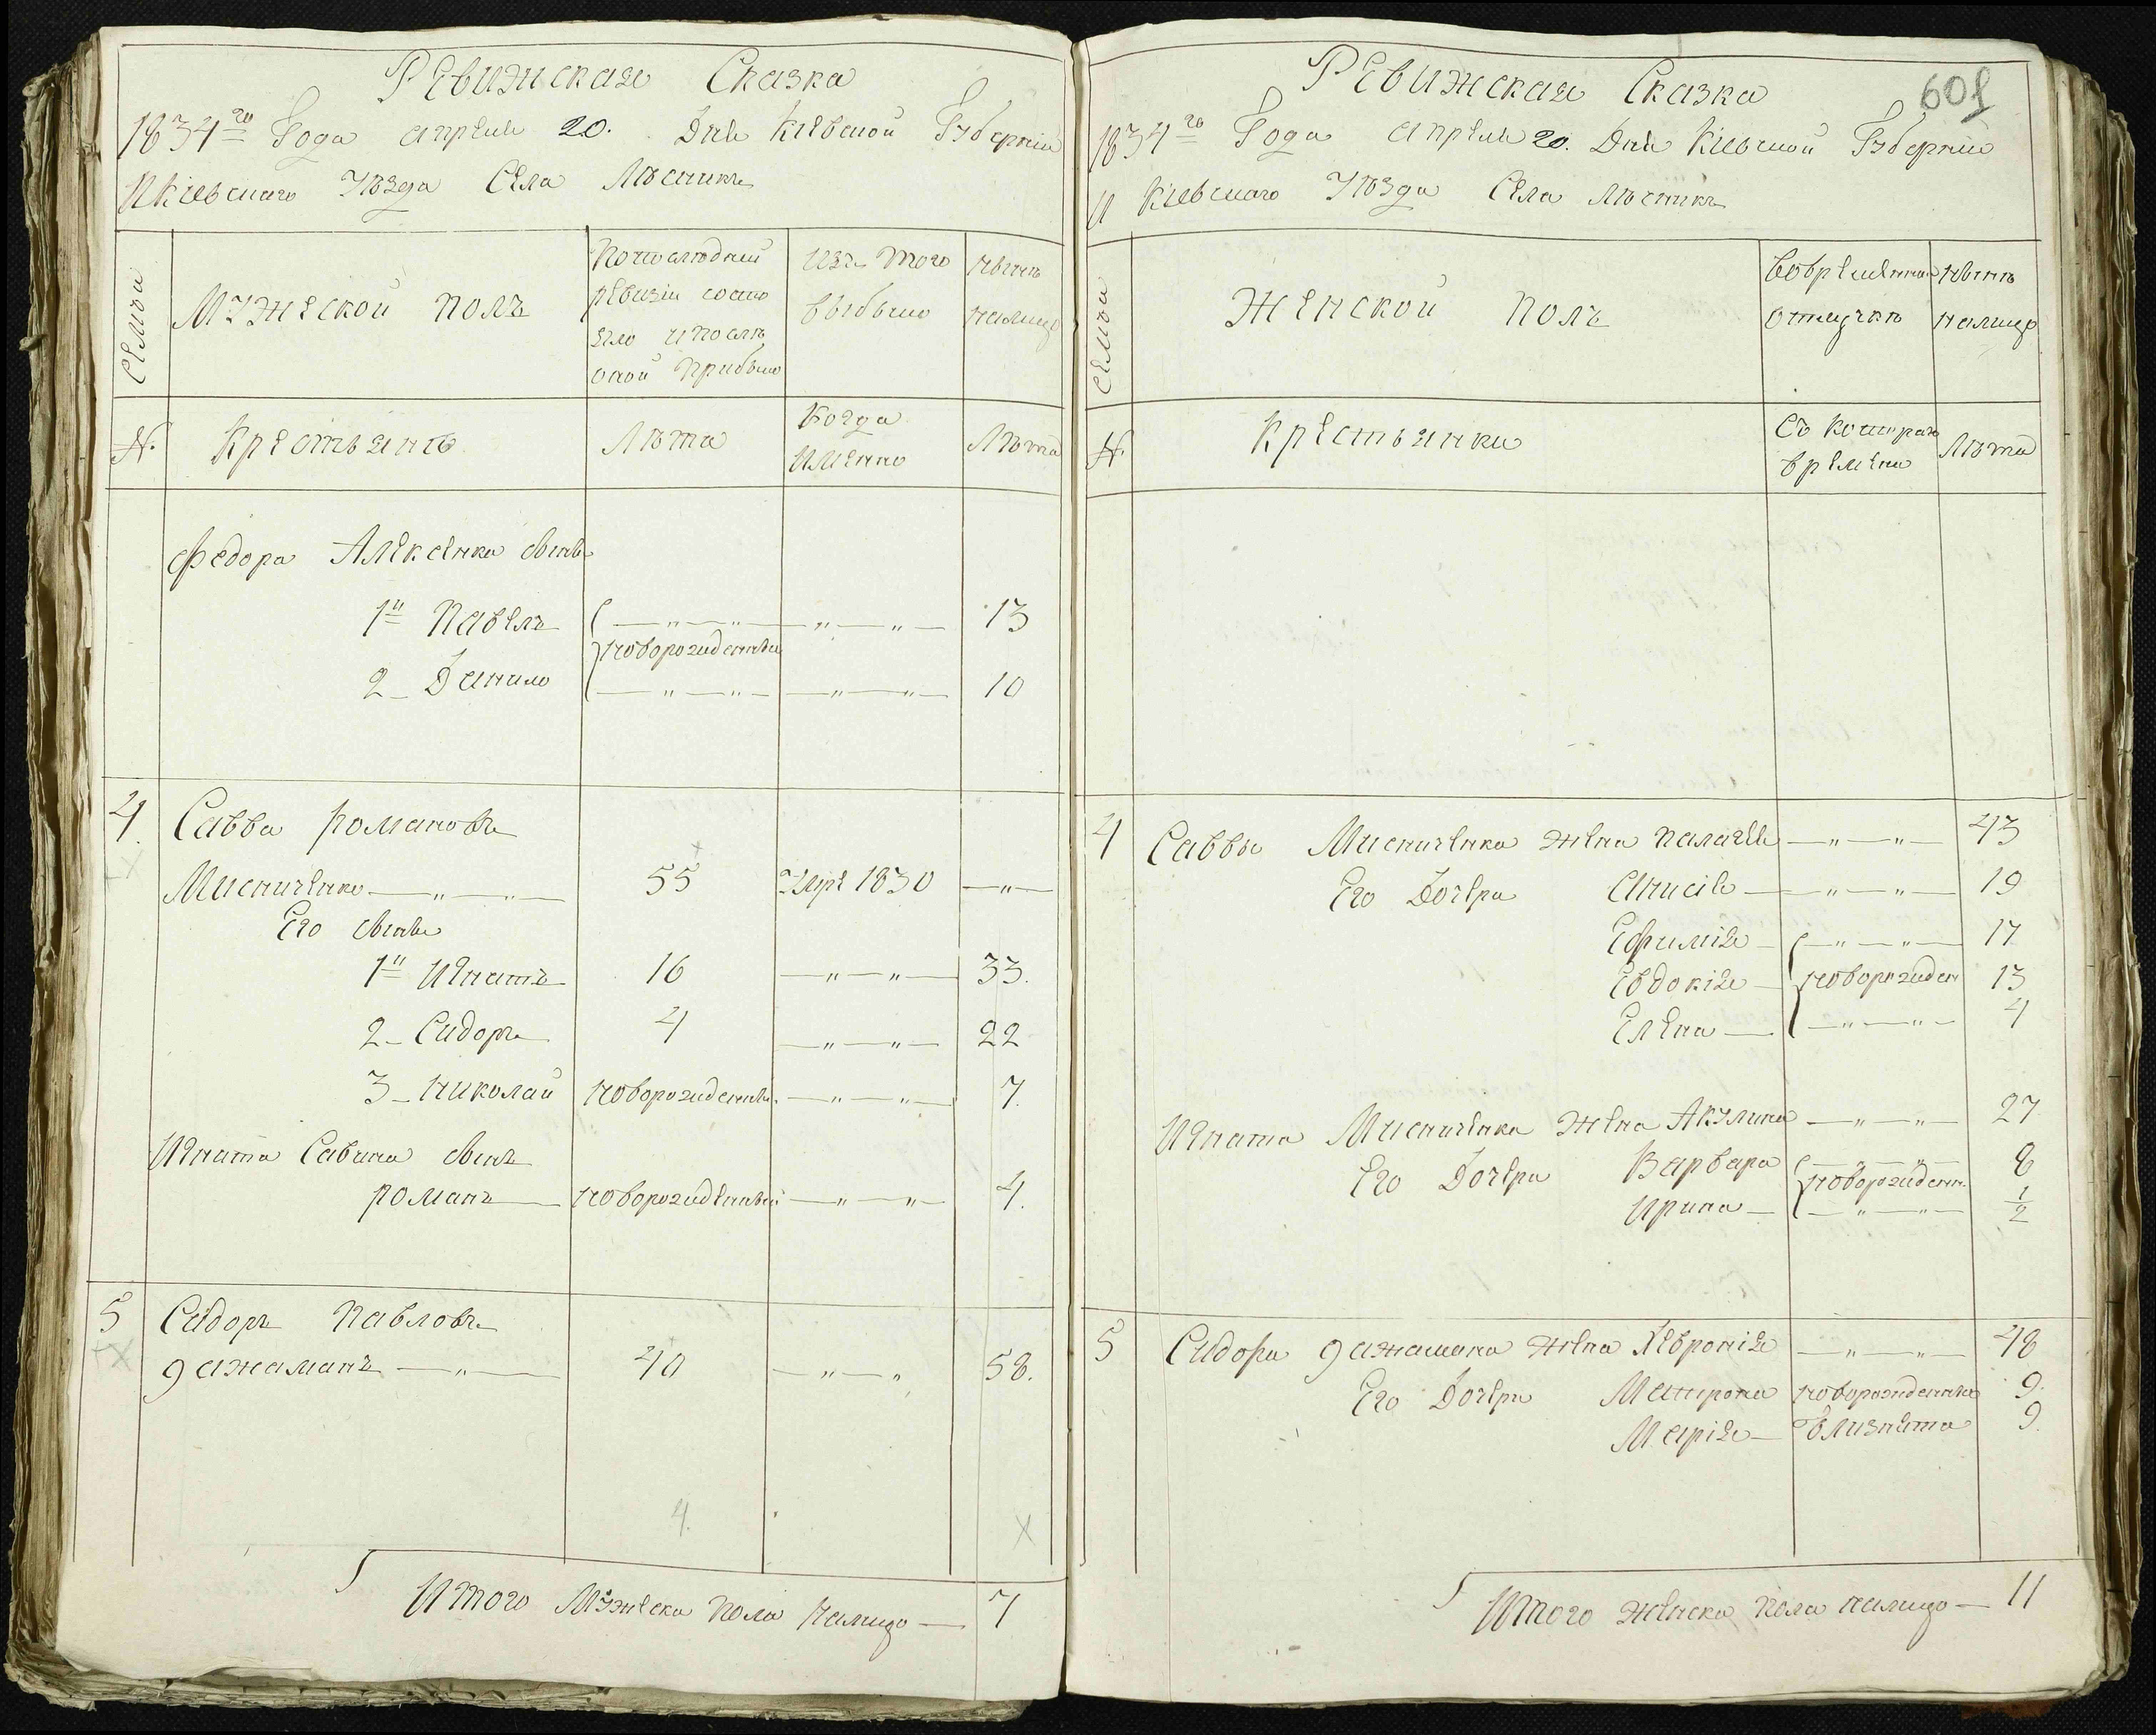 Ревижская Сказка
1834го Года апреля 20. Дня Киевской Губерніи
И Кіевскаго Уѣзда Села Лѣсникъ
Семьи
Мужеской полъ
Попослѣдней
ревизіи состо
яло и послѣ
оной прибыло
Изъ того
выбыло
Нынѣ
налицо
№.
Крестьянъ
Лѣта
Когда
Именно
Лѣта
Федора Алексенка сынъ
1й Павелъ — „ — „ — — „ — „ — 13
новорожденны
2 – Данило — „ — „ — — „ — „ — 10
4. Савва Романовъ
Мисниченко — „ — „ — 55 Умре 1830 — „ —
Его сынъ
1й Игнатъ 16 — „ — „ — 33.
2 – Сидоръ 4 — „ — „ — 22
3 – Николай новорожденны. — „ — „ — 7.
Игната Савина сынъ
Романъ — новорожденный — „ — „ — 4.
5 Сидоръ Павловъ
Гажаманъ — „ — 40 — „ — „ 58.
4.
Итого Мужеска пола налицо — 7
601
Ревижская Сказка
1834го Года апреля 20. Дня Кіевской Губерніи
И Кіевскаго Уѣзда Села Лѣсникъ
Семьи
Женской полъ
Вовременной
отлучкѣ
Нынѣ
налицо
№
Крестьянки
Съ котораго
времени
Лѣта
4 Саввы Мисниченка жена Палагея — „ — „ — 43
Его Дочери Анисія — — „ — „ — 19
Ефимія — — „ — „ — 17
Евдокія — новорожден 13
Елена — — „ — „ — 4
Игната Мисниченка жена Акулина — „ — „ — 27
Его Дочери Варвара — „ — „ — 8
новорожденн.
Ирина — — „ — „ — 1/2
5 Сидора Гажамана жена Хевронія — „ — „ — 48
Его Дочери Матрона новорожденны 9.
Марія — близнята 9.
Итого женска пола налицо — 11